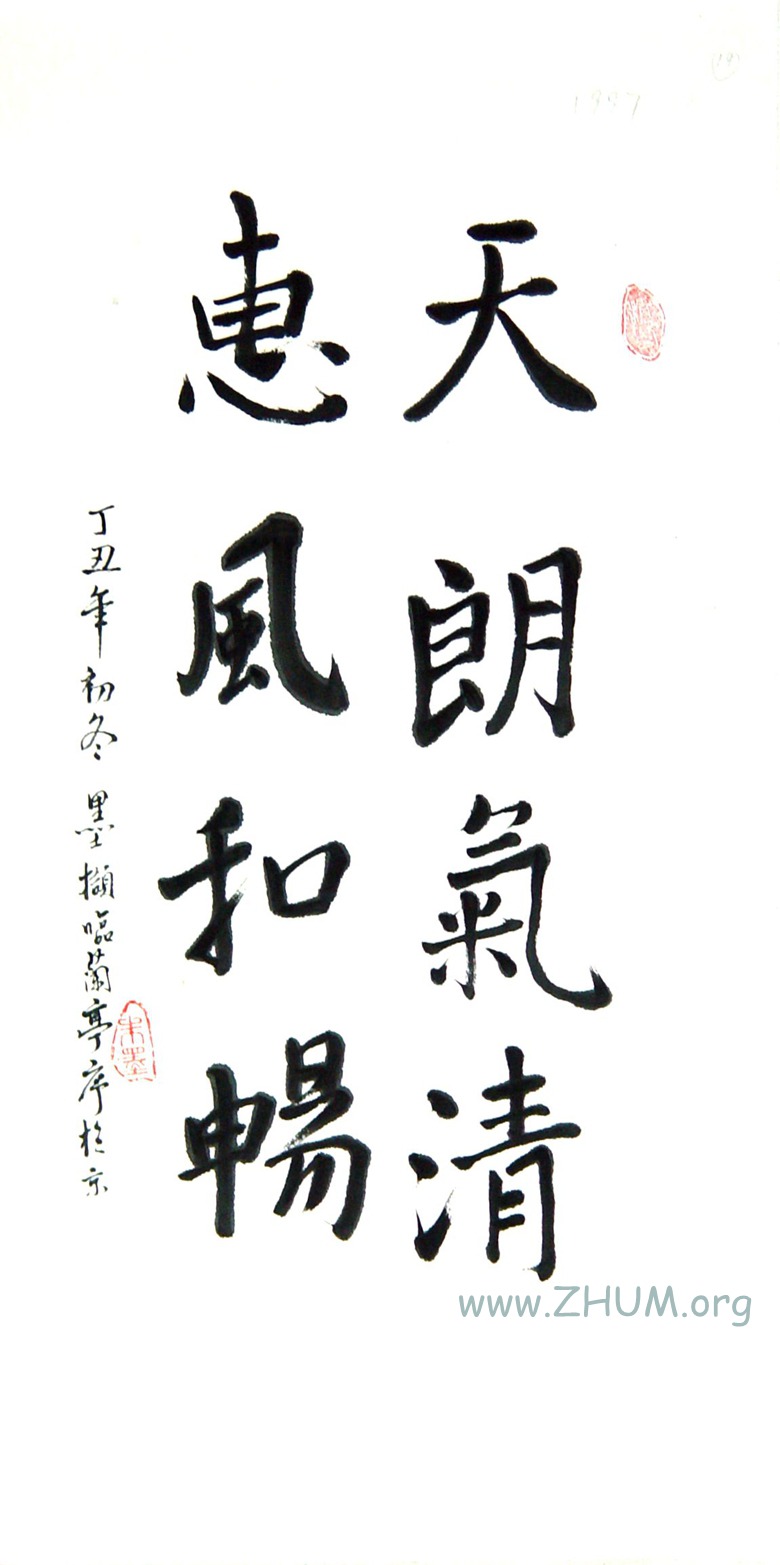 天朗氣清
惠風和暢
丁丑年初冬 墨擷臨蘭亭序於京
朱墨
1997
19
www.ZHUM.org